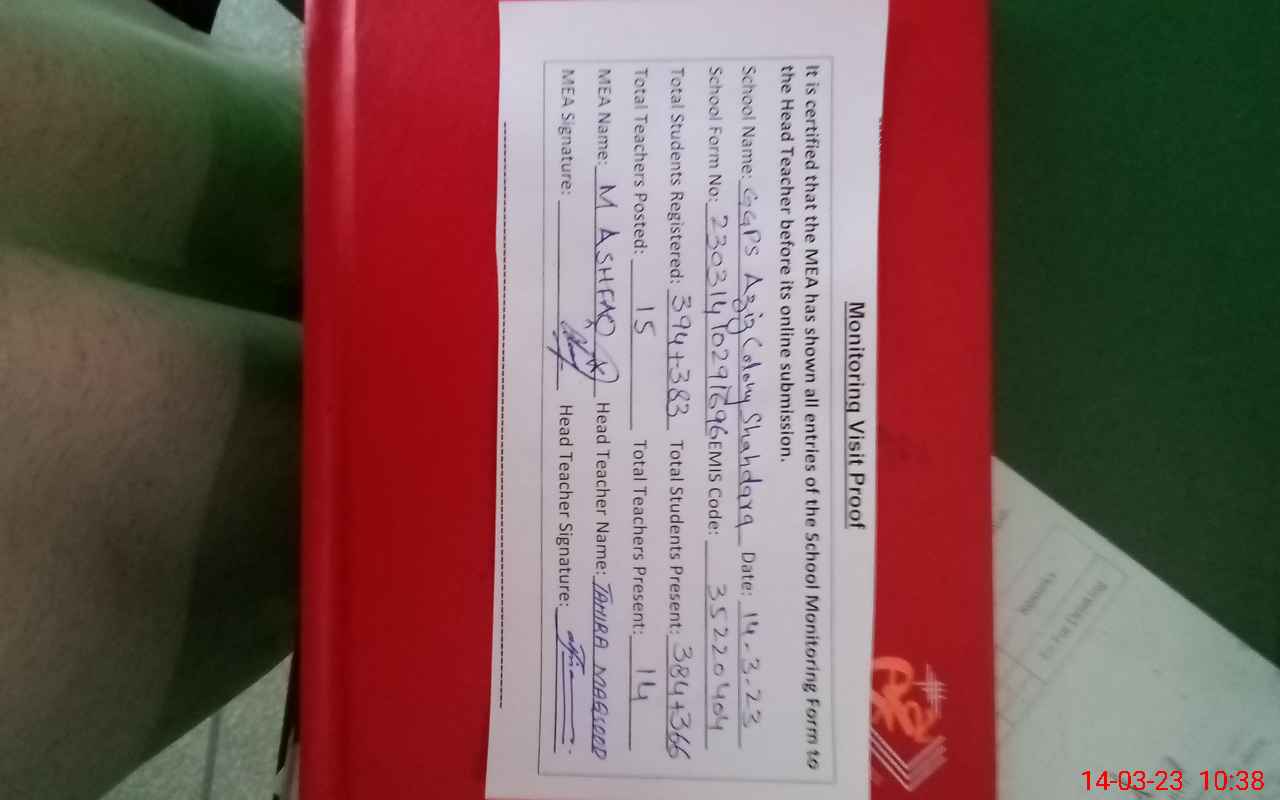 Monitoring Visit Proof
It is certified that the MEA has shown all entries of the School Monitoring Form to
the Head Teacher before its online submission.
School Name: GGPS Aziz Colony Shahdara Date: 14-3-23
School Form No: EMIS Code: 35220404
Total Students Registered: 394+383 Total Students Present: 384+366
Total Teachers Posted: 15 Total Teachers Present: 14
MEA Name: M ASHFAQ Head Teacher Name: TAHIRA MAQSOOD
MEA Signature: Head Teacher Signature:
14-03-23 10:38